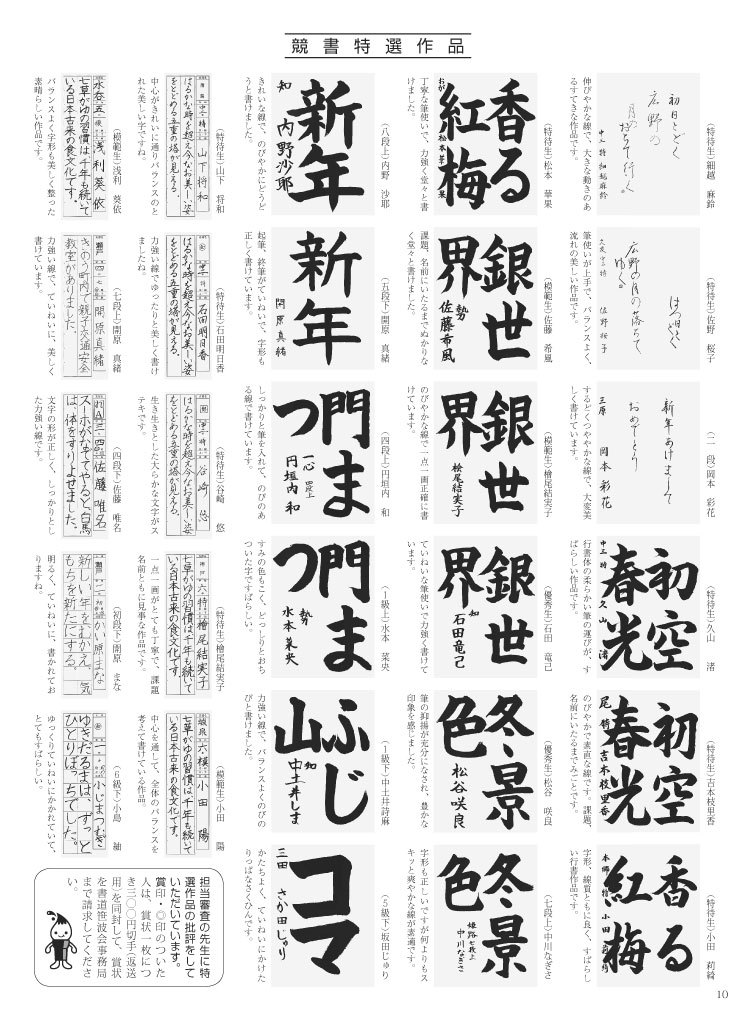 競書特選作品
(特待生)細越 麻鈴
初日とどく
広野の
月の
おちて行く
中一 特 細越麻鈴
伸びやかな線で、大きな動きのあ
るすてきな作品です。
(特待生)佐野 桜子
はつ日とどく
広野の月の落ちて
ゆく
佐野 桜子
筆使いが上手で、バランスよく、
流れの美しい作品です。
(一一段)岡本 彩花
新年あけまして
おめでとう
三原 岡本 彩花
するどくつややかな線で、大変美
しく書けています。
(特待生)久山 渚
初空
春光
中三 特 久山 渚
行書体の柔らかい筆の運びが、す
ばらしい作品です。
(特待生)吉本枝里香
初空
春光
尾 特 吉本枝里香
のびやかで素直な線です。課題、
名前にいたるまでみごとです。
(特待生)小田 莉綺
香る
紅梅
字形、線質ともに良く、すばらし
い行書作品です。
(特待生)松本 華果
香る
紅梅
松本華果
丁寧な筆使いで、力強く堂々と書
けました。
(模範生)佐藤 希風
銀世
界
勢
佐藤希風
課題、名前にいたるまでぬかりな
く堂々と書けました。
(模範生)桧尾結実子
銀世
界
桧尾結実子
のびやかな線で一点一画正確に書
けています。
(優秀生)石田 竜己
銀世
界
知
石田竜己
ていねいな筆使いで力強く書けて
います。
(優秀生)松谷 咲良
冬景
色
松谷咲良
筆の抑揚が充分になされ、豊かな
印象を感じました。
(七段上)中川なぎさ
冬景
色
姫路 七段上
中川なぎさ
字形も正しいですが何よりもス
キッと爽やかな線が素適です。
(八段上)内野 沙耶
新年
知 内野沙耶
きれいな線で、のびやかにどうど
うと書けました。
(五段下)開原 真緒
新年
開原真緒
起筆、終筆がていねいで、字形も
正しく書けています。
(四段上)円垣内 和
門ま
つ
一心 四段上
円垣内 和
しっかりと筆を入れて、のびのあ
る線で書けています。
(1級上)水本 菜央
門ま
つ
勢
水本菜央
すみの色もこく、どっしりとおち
ついた字ですばらしい。
(1級下)中土井詩麻
ふじ
山
知
中土井しま
力強い線で、バランスよくのびの
びと書けました。
(5級下)坂田じゅり
コマ
三田 さか田じゅり
かたちよく、ていねいにかけた
りっぱなさくひんです。
(特待生)山下 将和
中二 特 山下将和
はるかな時を超え今なお美しい姿
をとどめる五重の塔が見える。
中心がきれいに通りバランスのと
れた美しい字ですね。
(特待生)石田明日香
中二 特 石田明日香
はるかな時を超え今なお美しい姿
をとどめる五重の塔が見える。
力強い線でゆったりと美しく書け
ましたね。
(特待生)谷崎 悠
中一 特 谷崎 悠
はるかな時を超え今なお美しい姿
をとどめる五重の塔が見える。
生き生きとした大らかな文字がス
テキです。
(特待生)檜尾結実子
六 特 檜尾結実子
七草がゆの習慣は千年も続いて
いる日本古来の食文化です。
一点一画がとても丁寧で、課題
名前ともに見事な作品です。
(模範生)小田 陽
六 模 小田 陽
七草がゆの習慣は千年も続いて
いる日本古来の食文化です。
中心を通して、全体のバランスを
考えて書けている作品。
(模範生)浅利 葵依
水呑 五 模 浅利葵依
七草がゆの習慣は千年も続いて
いる日本古来の食文化です。
バランスよく字形も美しく整った
素晴らしい作品です。
(七段上)開原 真緒
瀬戸 四 七 開原真緒
きのう町内で親子交通安全
教室がありました。
力強い線で、ていねいに、美しく
書けています。
(四段下)佐藤 唯名
三 四 佐藤唯名
スーホがなでてやると、白馬
は、体をすりよせました。
文字の形が正しく、しっかりとし
た力強い線です。
(初段下)開原 まな
瀬戸 かい原まな
新しい年をむかえ、気
もちを新たにする。
明るく、ていねいに、書かれてお
りますね。
(6級下)小島 紬
一 小じまつむぎ
ゆきだるまは、ずっと
ひとりぼっちでした。
ゆっくりていねいにかかれていて、
とてもすばらしい。
担当審査の先生に特
選作品の批評をして
いただいています。
賞印・◎印のついた
人は、賞状一枚につ
き三〇〇円切手(返送
用)を同封して、賞状
を書道笹波会事務局
まで請求してくださ
い。
10